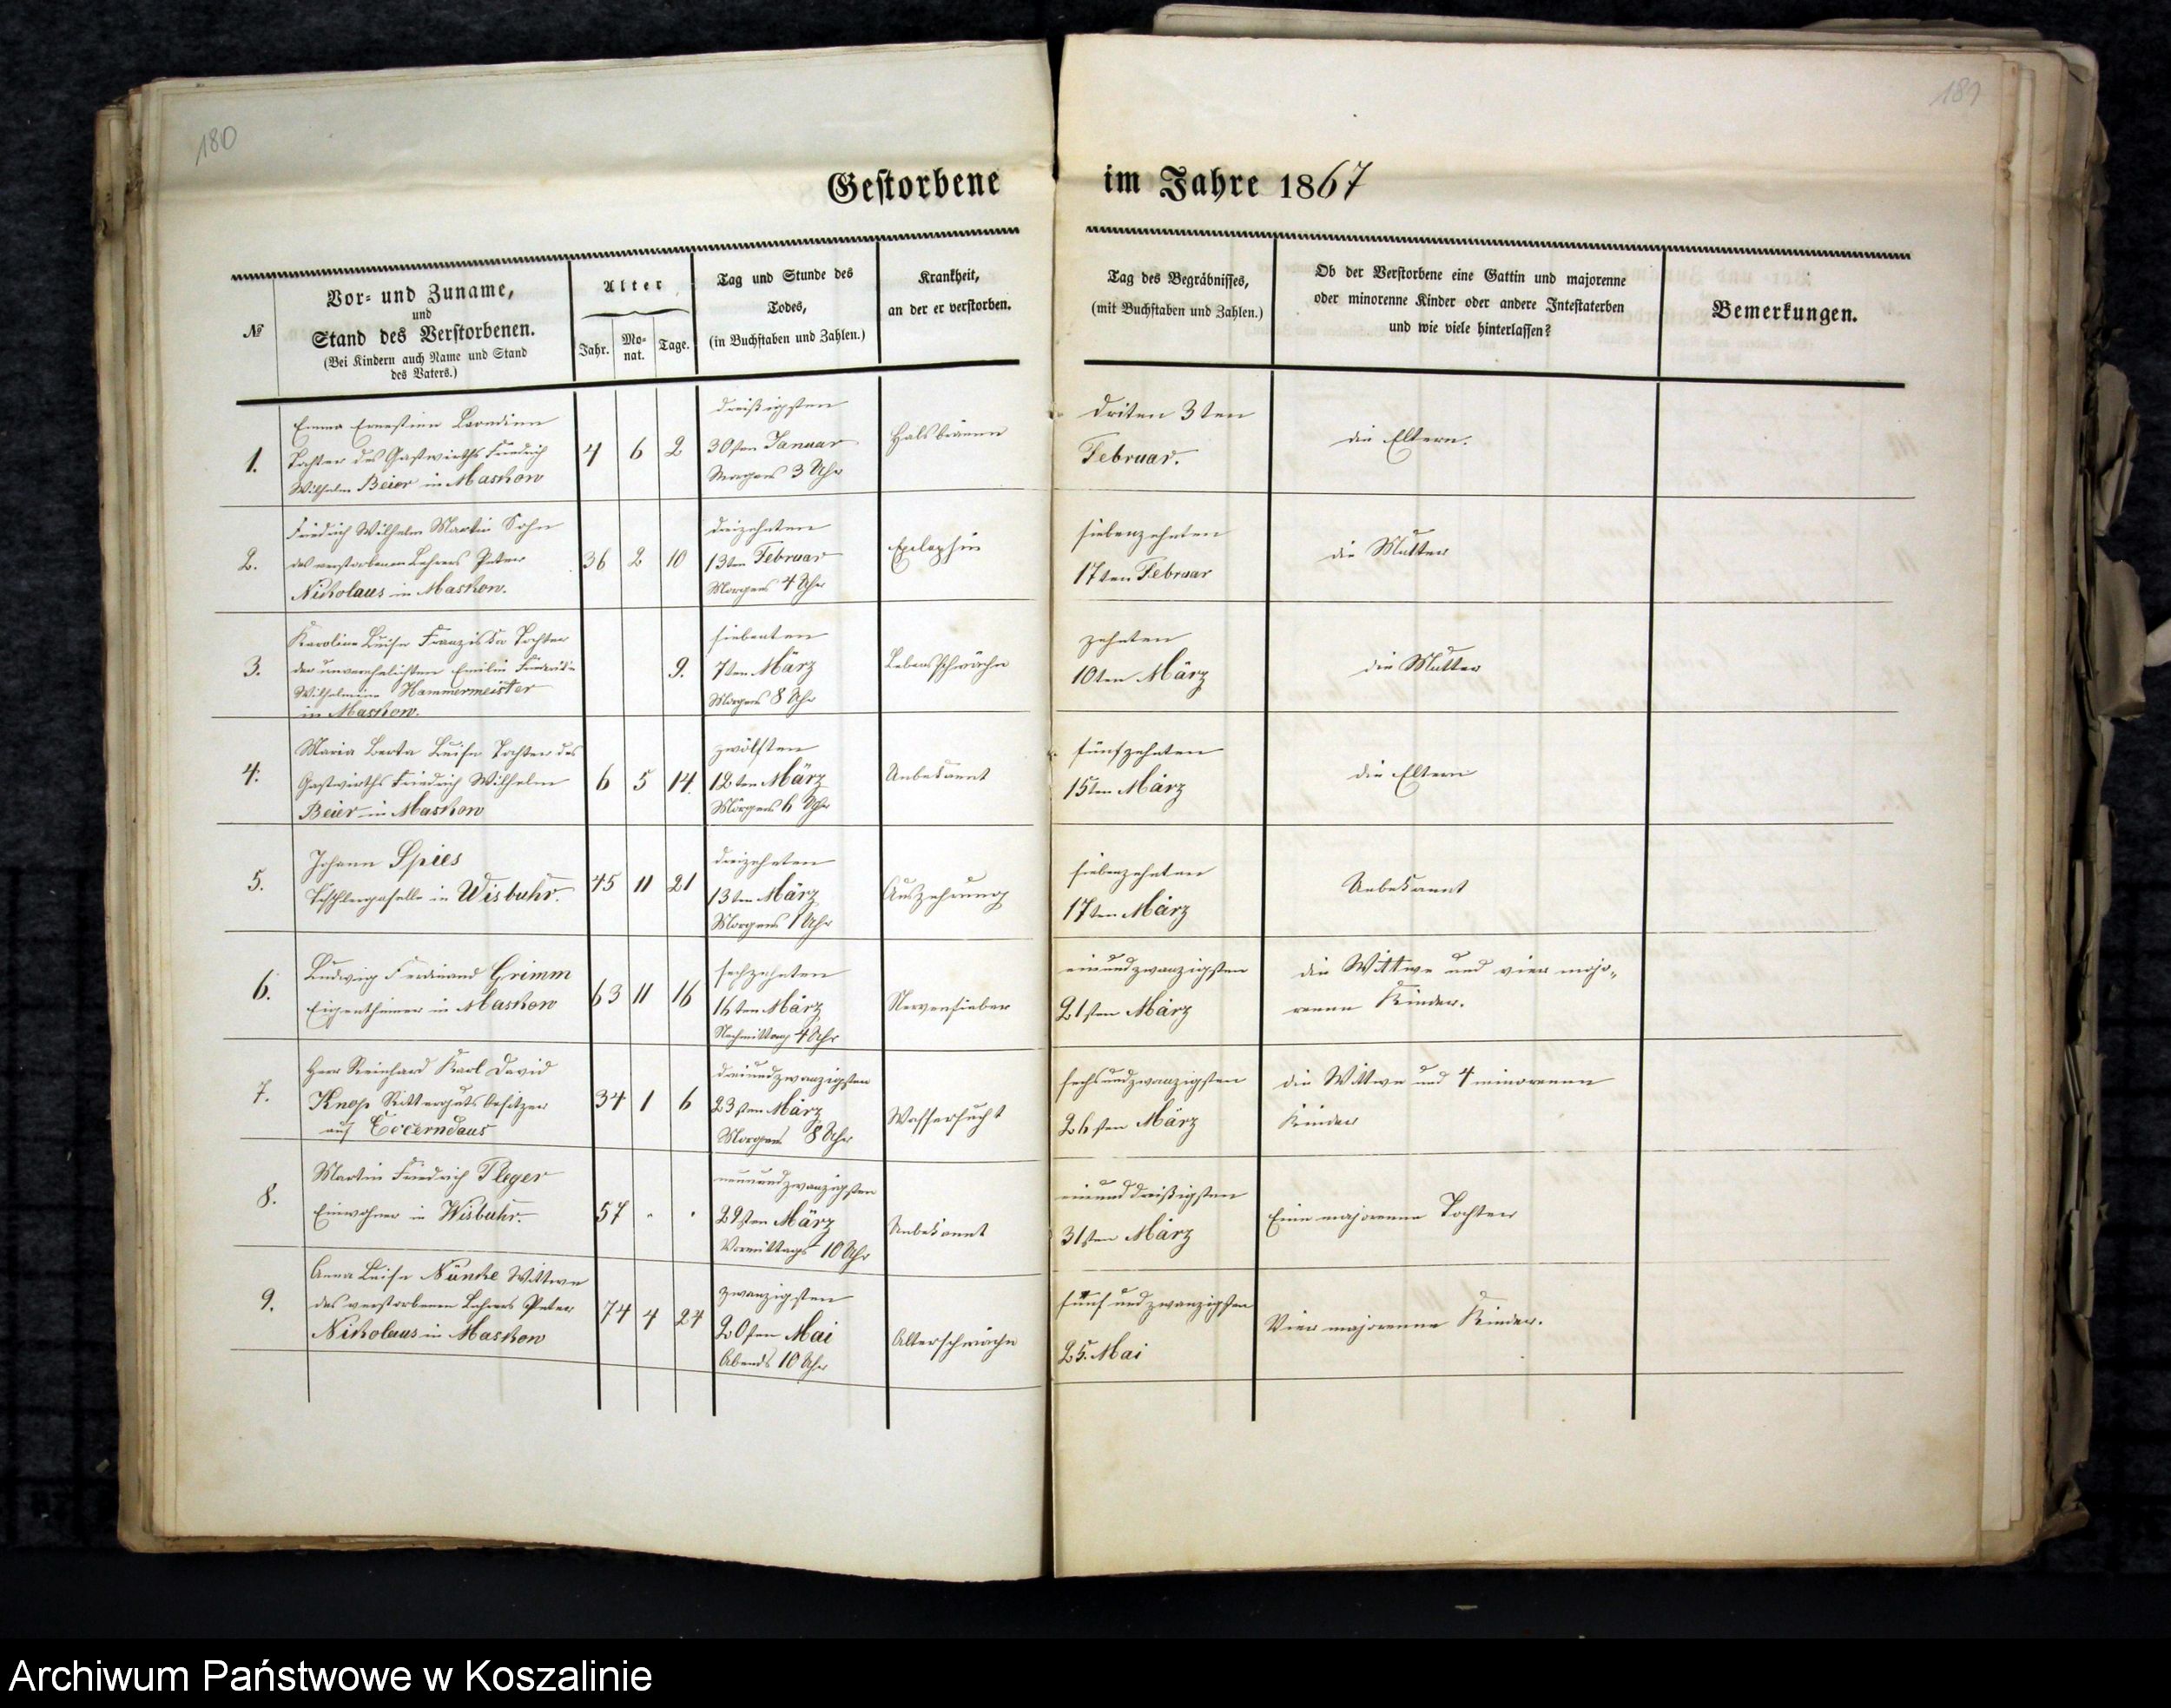 180
181
Gestorbene
im Jahre 1867
№
Vor- und Zuname,
und
Stand des Verstorbenen.
(Bei Kindern auch Name und Stand
des Vaters.)
Alter
Jahr.
Mo-
nat.
Tage.
Tag und Stunde des
Todes,
(in Buchstaben und Zahlen.)
Krankheit,
an der er verstorben.
Tag des Begräbnisses,
(mit Buchstaben und Zahlen.)
Ob der Verstorbene eine Gattin und majorenne
oder minorenne Kinder oder andere Intestaterben
und wie viele hinterlassen?
Bemerkungen.
1.
Emma Ernestine
Tochter des Gastwirths Friedrich
Wilhelm Beier in Maskow
4 6 2
dreißigsten
30sten Januar
Morgens 3 Uhr
Halsbräune
driten 3ten
Februar.
die Eltern.
2.
Friedrich Wilhelm Martin Sohn
des verstorbenen Lehrers Peter
Nikolaus in Maskow.
36 2 10
dreizehnten
13ten Februar
Morgens 4 Uhr
Epilepsie
siebenzehnten
17ten Februar
die Mutter
3.
Karoline Luise Franziska Tochter
der unverehelichten Emilie
Wilhelmine Hammermeister
in Maskow.
9.
siebenten
7ten März
Morgens 8 Uhr
Lebensschwäche
zehnten
10ten März
die Mutter
4.
Maria Berta Luise Tochter des
Gastwirths Friedrich Wilhelm
Beier in Maskow
6 5 14.
zwölften
12ten März
Morgens 6 Uhr
Unbekannt
fünfzehnten
15ten März
die Eltern
5.
Johann Spies
Tischlergeselle in Wisbuhr.
45 11 21
dreizehnten
13ten März
Morgens 1 Uhr
Auszehrung
siebenzehnten
17ten März
Unbekannt
6.
Ludwig Ferdinand Grimm
Eigenthümer in Maskow
63 11 16
sechzehnten
16ten März
Nachmittag 4 Uhr
Nervenfieber
einundzwanzigsten
21sten März
die Wittwe und vier majo-
renne Kinder.
7.
Herr Reinhard Karl David
Knop Rittergutsbesitzer
auf
34 1 6
dreiundzwanzigsten
23sten März
Morgens 8 Uhr
Wassersucht
sechsundzwanzigsten
26sten März
die Wittwe und 4 minorenne
Kinder
8.
Martin Friedrich Pleger
Einwohner in Wisbuhr.
57 . .
neunundzwanzigsten
29sten März
Vormittags 10 Uhr
Unbekannt
einunddreißigsten
31sten März
Eine majorenne Tochter
9.
Anna Luise Wittwe
des verstorbenen Lehrers Peter
Nikolaus in Maskow
74 4 24
zwanzigsten
20sten Mai
Abends 10 Uhr
Alterschwäche
fünfundzwanzigsten
25. Mai
Vier majorenne Kinder.
Archiwum Państwowe w Koszalinie